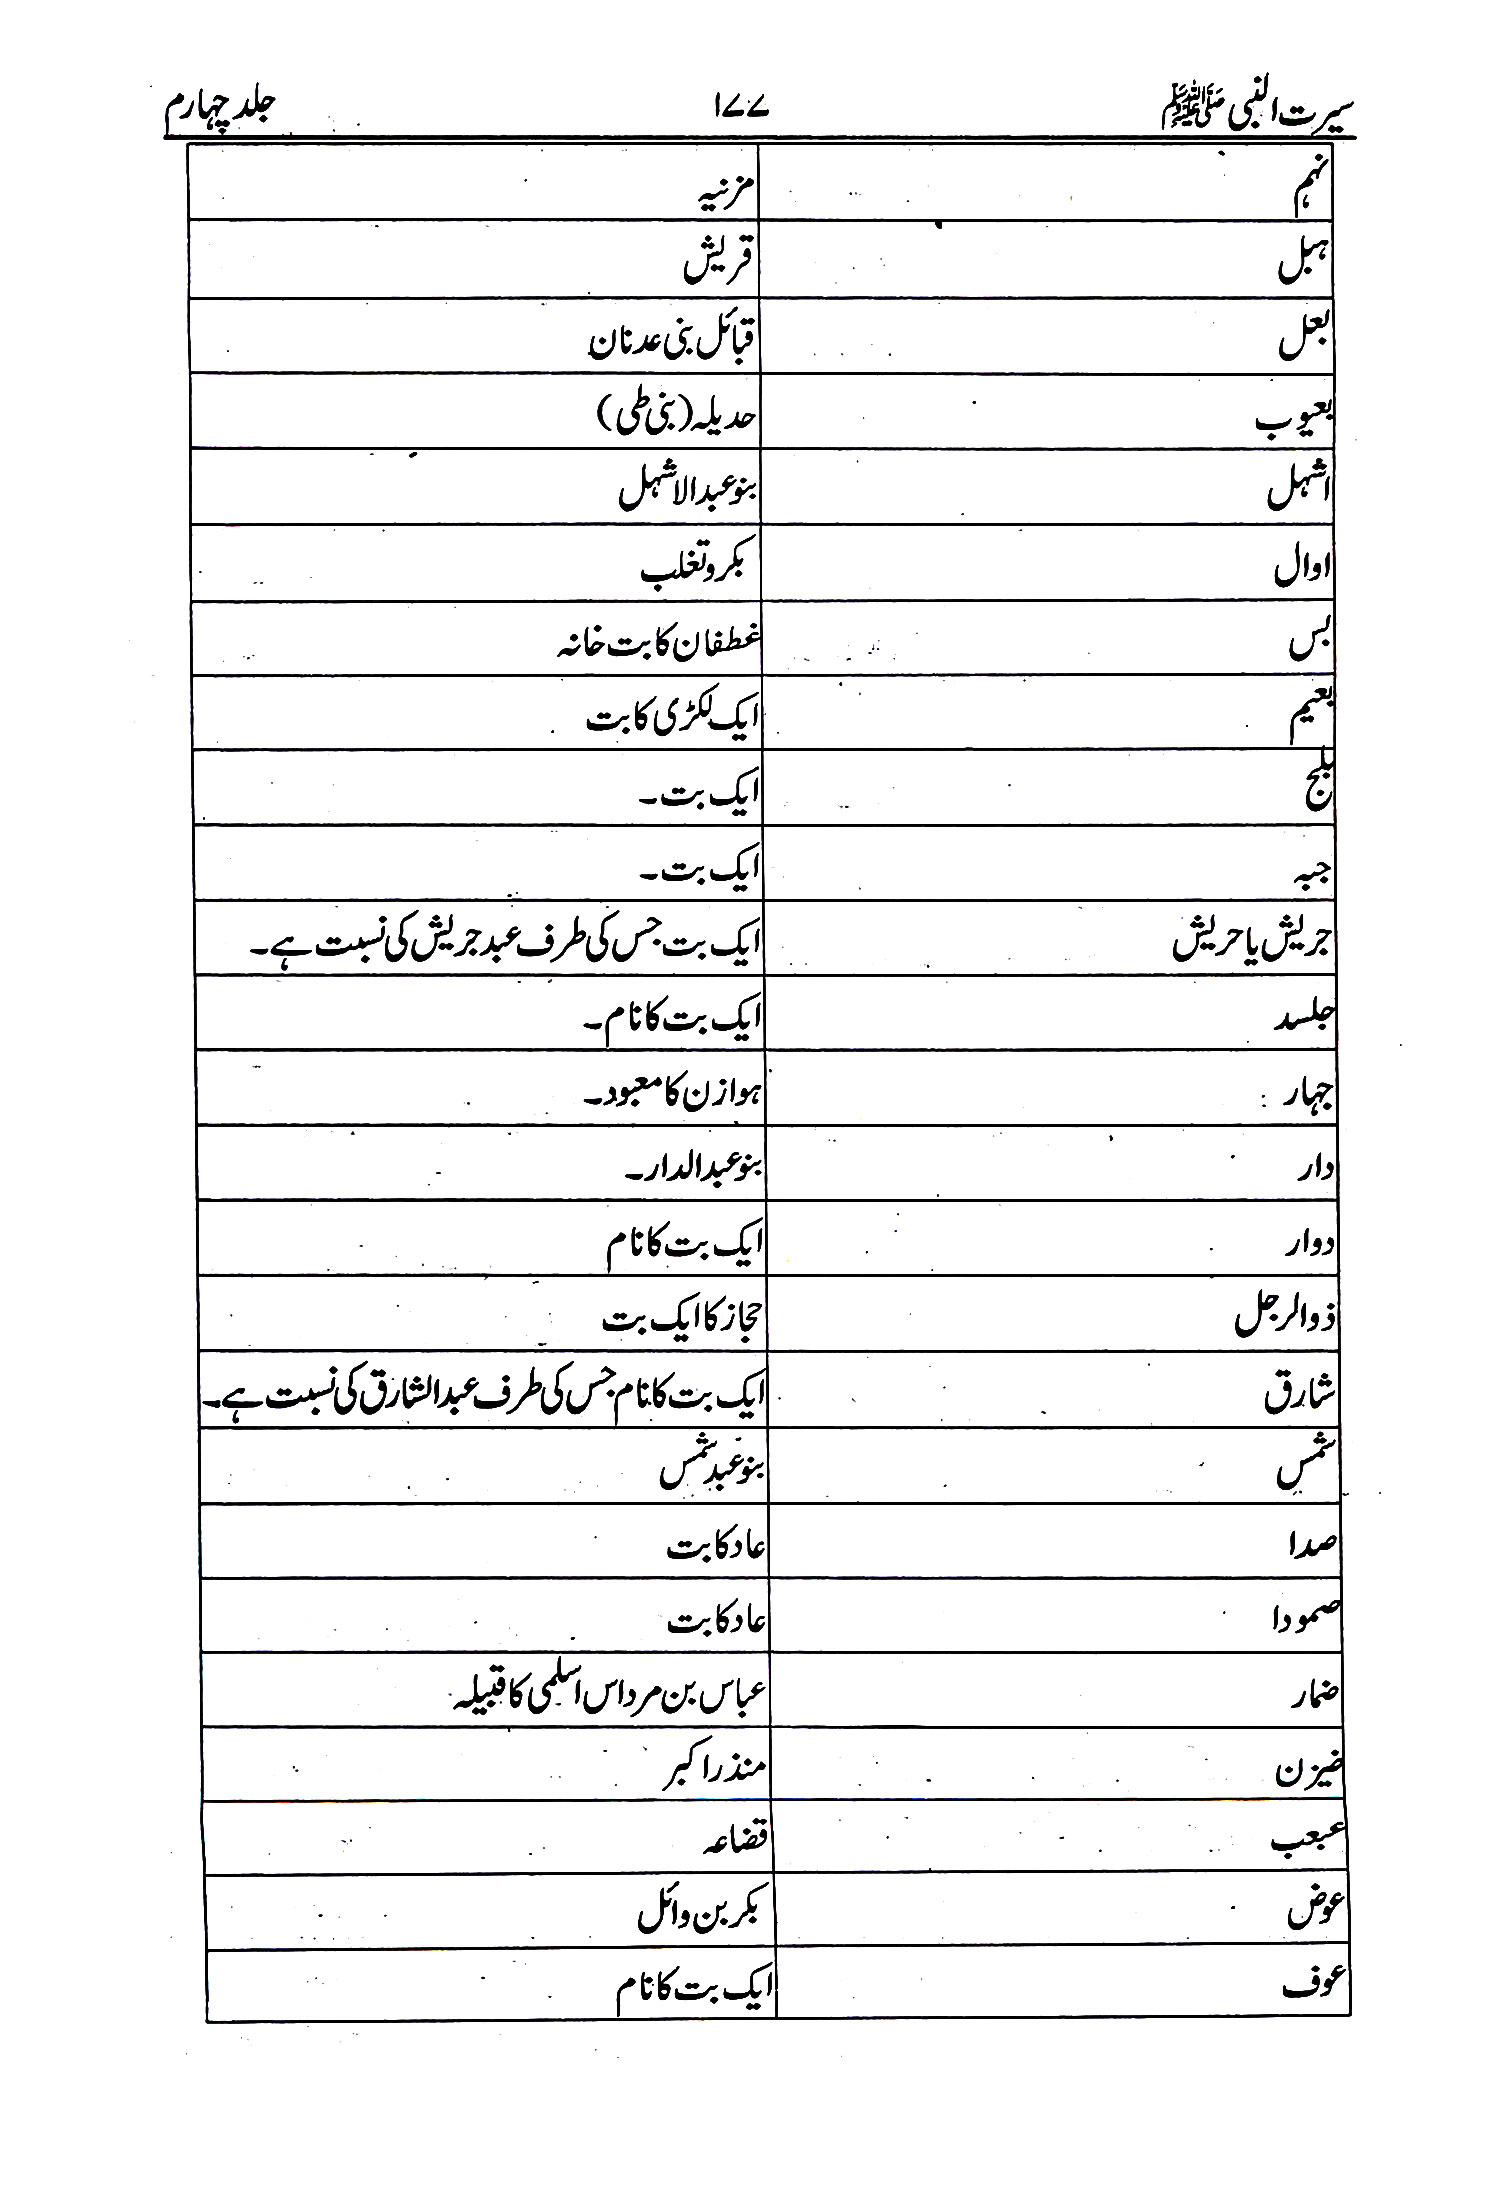 سیرت النبی ﷺ ۱۷۷ جلد چہارم
نہم مزنیہ
ہبل قریش
بعل قبائل بنی عدنان
بعیوب حدیلہ (بنی طی)
اشہل بنو عبدالاشہل
اوال بکر و تغلب
بس غطفان کا بت خانہ
بعیم ایک لکڑی کا بت
بلج ایک بت۔
جبہ ایک بت۔
جریش یا حریش ایک بت جس کی طرف عبد جریش کی نسبت ہے۔
جلسد ایک بت کا نام۔
جہار ہوازن کا معبود۔
دار بنو عبدالدار۔
دوار ایک بت کا نام
ذوالرجل حجاز کا ایک بت
شارق ایک بت کا نام جس کی طرف عبدالشارق کی نسبت ہے۔
شمس بنو عبد شمس
صدا عاد کا بت
صمودا عاد کا بت
ضمار عباس بن مرداس اسلمی کا قبیلہ
ضیزن منذر اکبر
عبعب قضاعہ
عوض بکر بن وائل
عوف ایک بت کا نام